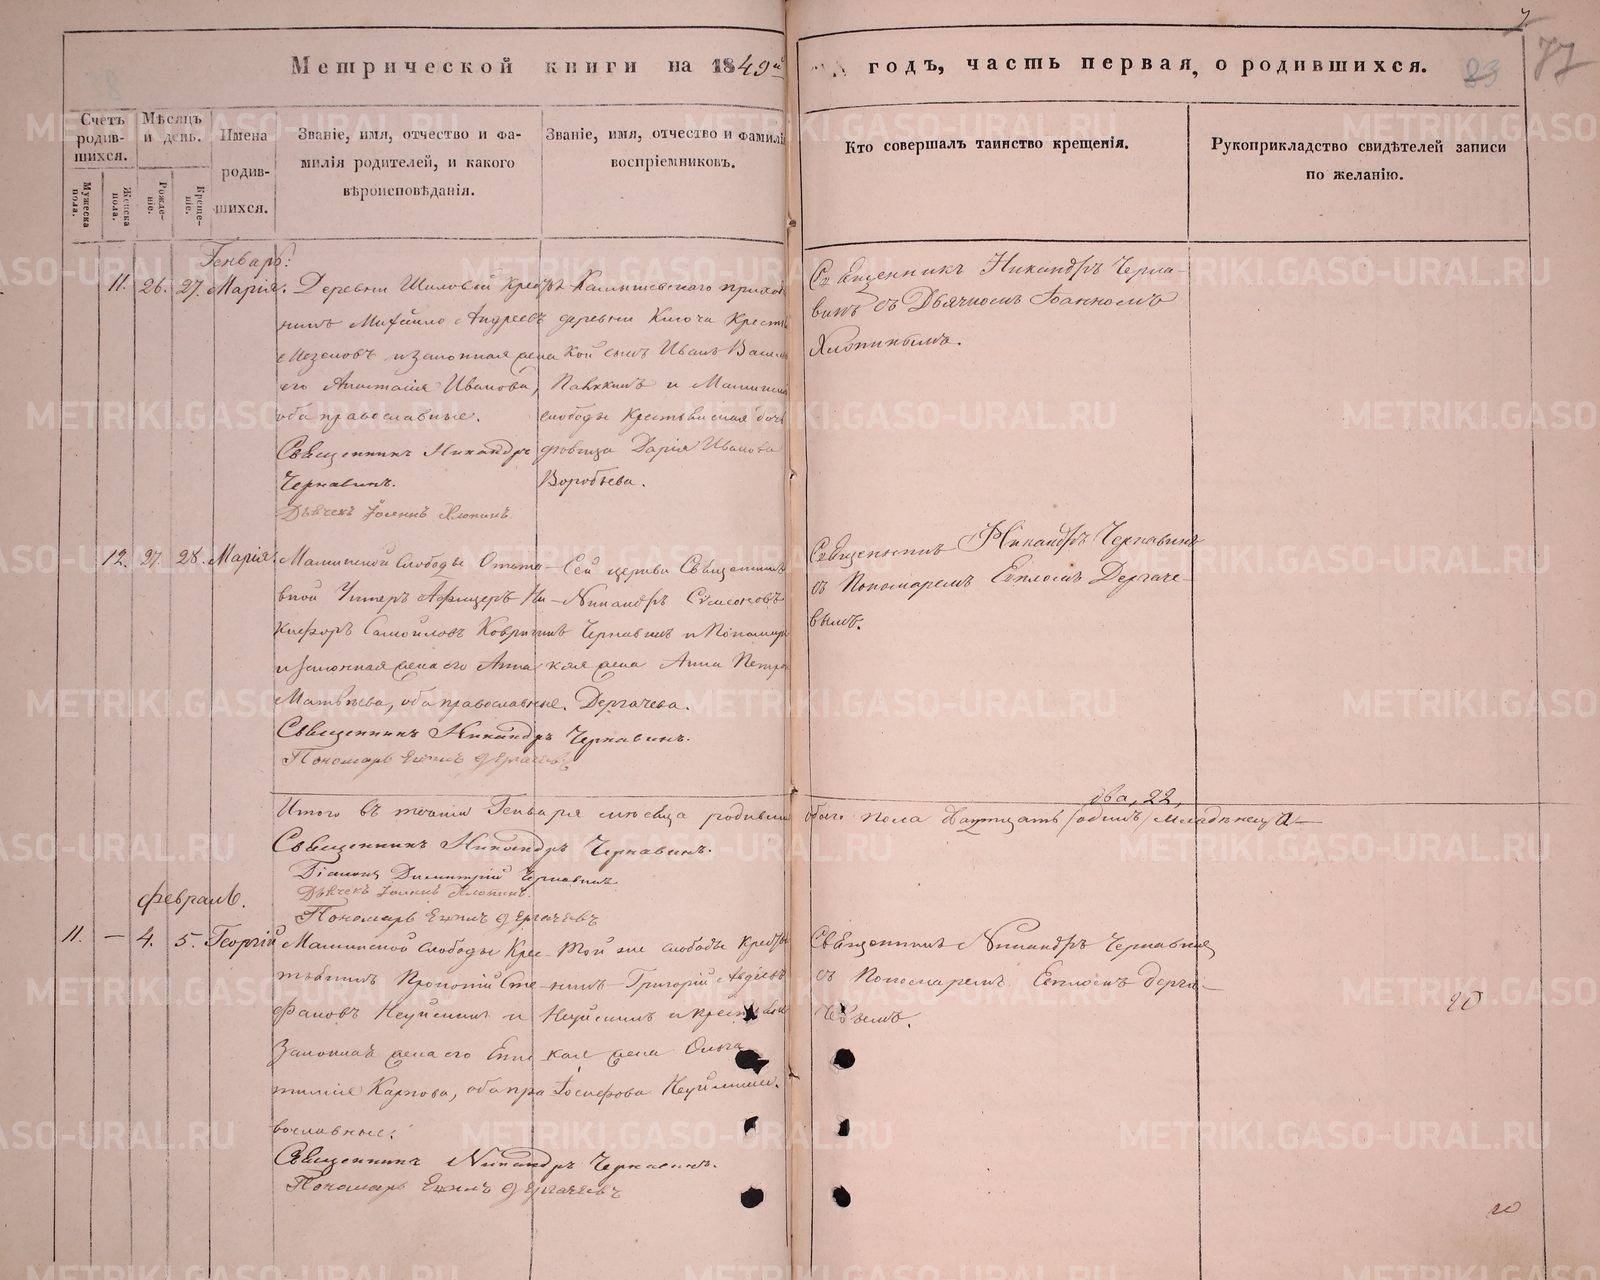 Метрической книги на 1849й годъ, часть первая, о родившихся.
7
23
77
Счетъ родив-шихся.
Мужеска пола.
Женска пола.
Мѣсяцъ и день.
Рожде-ніе.
Креще-ніе.
Имена родив-шихся.
Званіе, имя, отчество и фа-
милія родителей, и какого
вѣроисповѣданія.
Званіе, имя, отчество и фамилія
воспріемниковъ.
Кто совершалъ таинство крещенія.
Рукоприкладство свидѣтелей записи
по желанію.
Генварь:
11. 26. 27. Марія.
Деревни Шиловой Крестья-
нинъ Михайло Андреевъ
Мезеновъ и законная жена
его Анастасія Иванова,
оба православные.
Священникъ Никандръ
Чернавинъ.
Дьячекъ Іоаннъ Хлопинъ
Камышевскаго прихода
деревни Ключа Крестьян
кой сынъ Иванъ
и Маминской
слободы Крестьянская дочь
дѣвица Дарія Иванова
Воробьева.
Священникъ Никандръ Черна-
винъ съ Дьячкомъ Іоанномъ
Хлопинымъ.
12. 27. 28. Марія.
Маминской слободы Отста-
вной Унтеръ Афицеръ Ни-
кифоръ Самойловъ
и законная жена его Анна
Матвѣева, оба православные.
Священникъ Никандръ Чернавинъ.
Пономарь Евплъ Дергачевъ
Сей церкви Священникъ
Никандръ Симеоновъ
Чернавинъ и Пономар
ская жена Анна Петрова
Дергачева.
Священникъ Никандръ Чернавинъ
съ Пономаремъ Евпломъ Дергаче-
вымъ.
Итого въ теченіи Генваря мѣсяца родивши
обоего пола двадцать /одинъ/ младенецъ
два, 22,
Священникъ Никандръ Чернавинъ.
Діаконъ Димитрій Чернавинъ
Дьячекъ Іоаннъ Хлопинъ.
Пономарь Евплъ Дергачевъ
Февраль.
11. — 4. 5. Георгій
Маминской слободы Крес-
тьянинъ Прокопій Сте-
фановъ Неуйминъ и
законная жена его Епи-
стимія Карпова, оба пра-
вославные.
Священникъ Никандръ Чернавинъ.
Пономарь Евплъ Дергачевъ
Той же слободы Крестья
нинъ Григорій Авдѣевъ
Неуйминъ и крестьян
ская жена Ольга
Іосифова Неуймина.
Священникъ Никандръ Чернавинъ
съ Пономаремъ Евпломъ Дерга-
чевымъ.
20
20
METRIKI.GASO-URAL.RU